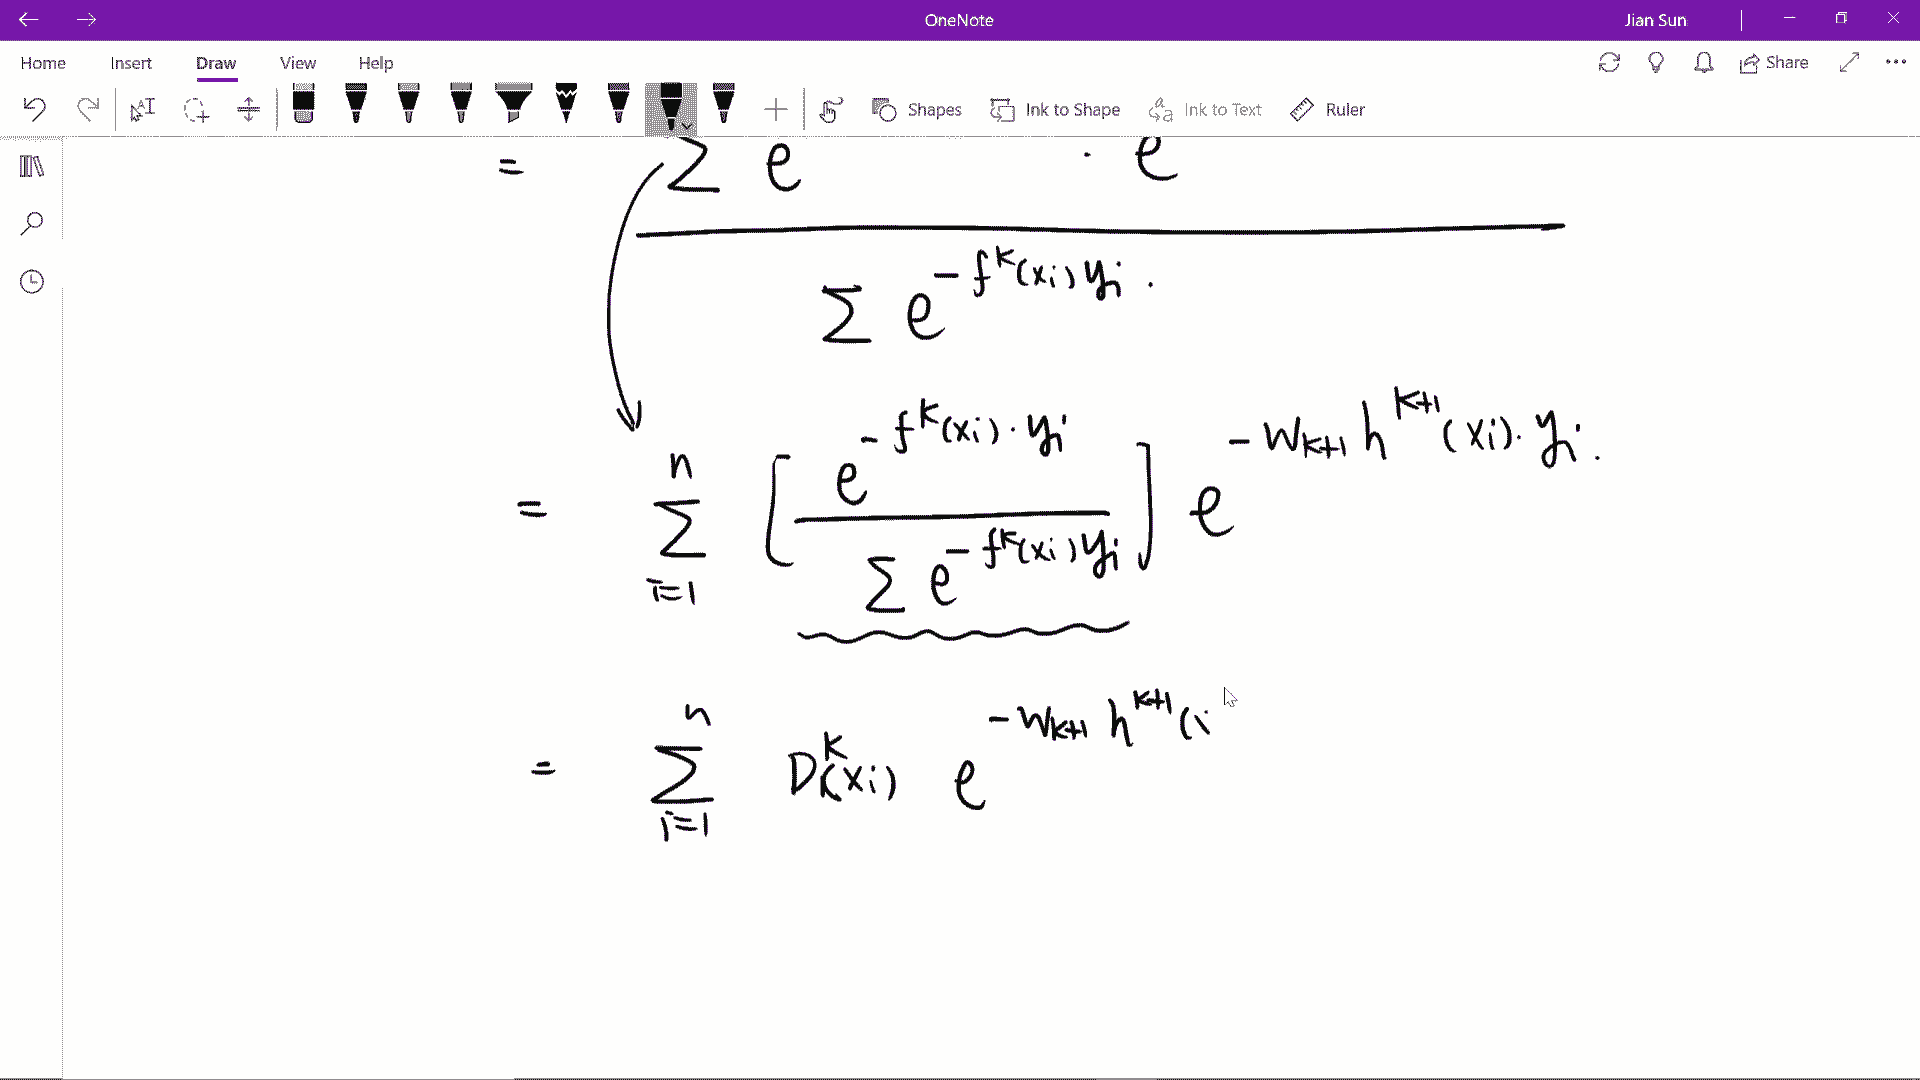 OneNote
Jian Sun
Home Insert Draw View Help
Share
Shapes Ink to Shape Ink to Text Ruler
= Σ e · e
Σ e^{-f^k(xi) yi} .
= Σ_{i=1}^{n} [ e^{-f^k(xi)·yi} / Σ e^{-f^k(xi) yi} ] e^{-W_{k+1} h^{k+1}(xi)·yi} .
= Σ_{i=1}^{n} D^k(xi) e^{-W_{k+1} h^{k+1}(i